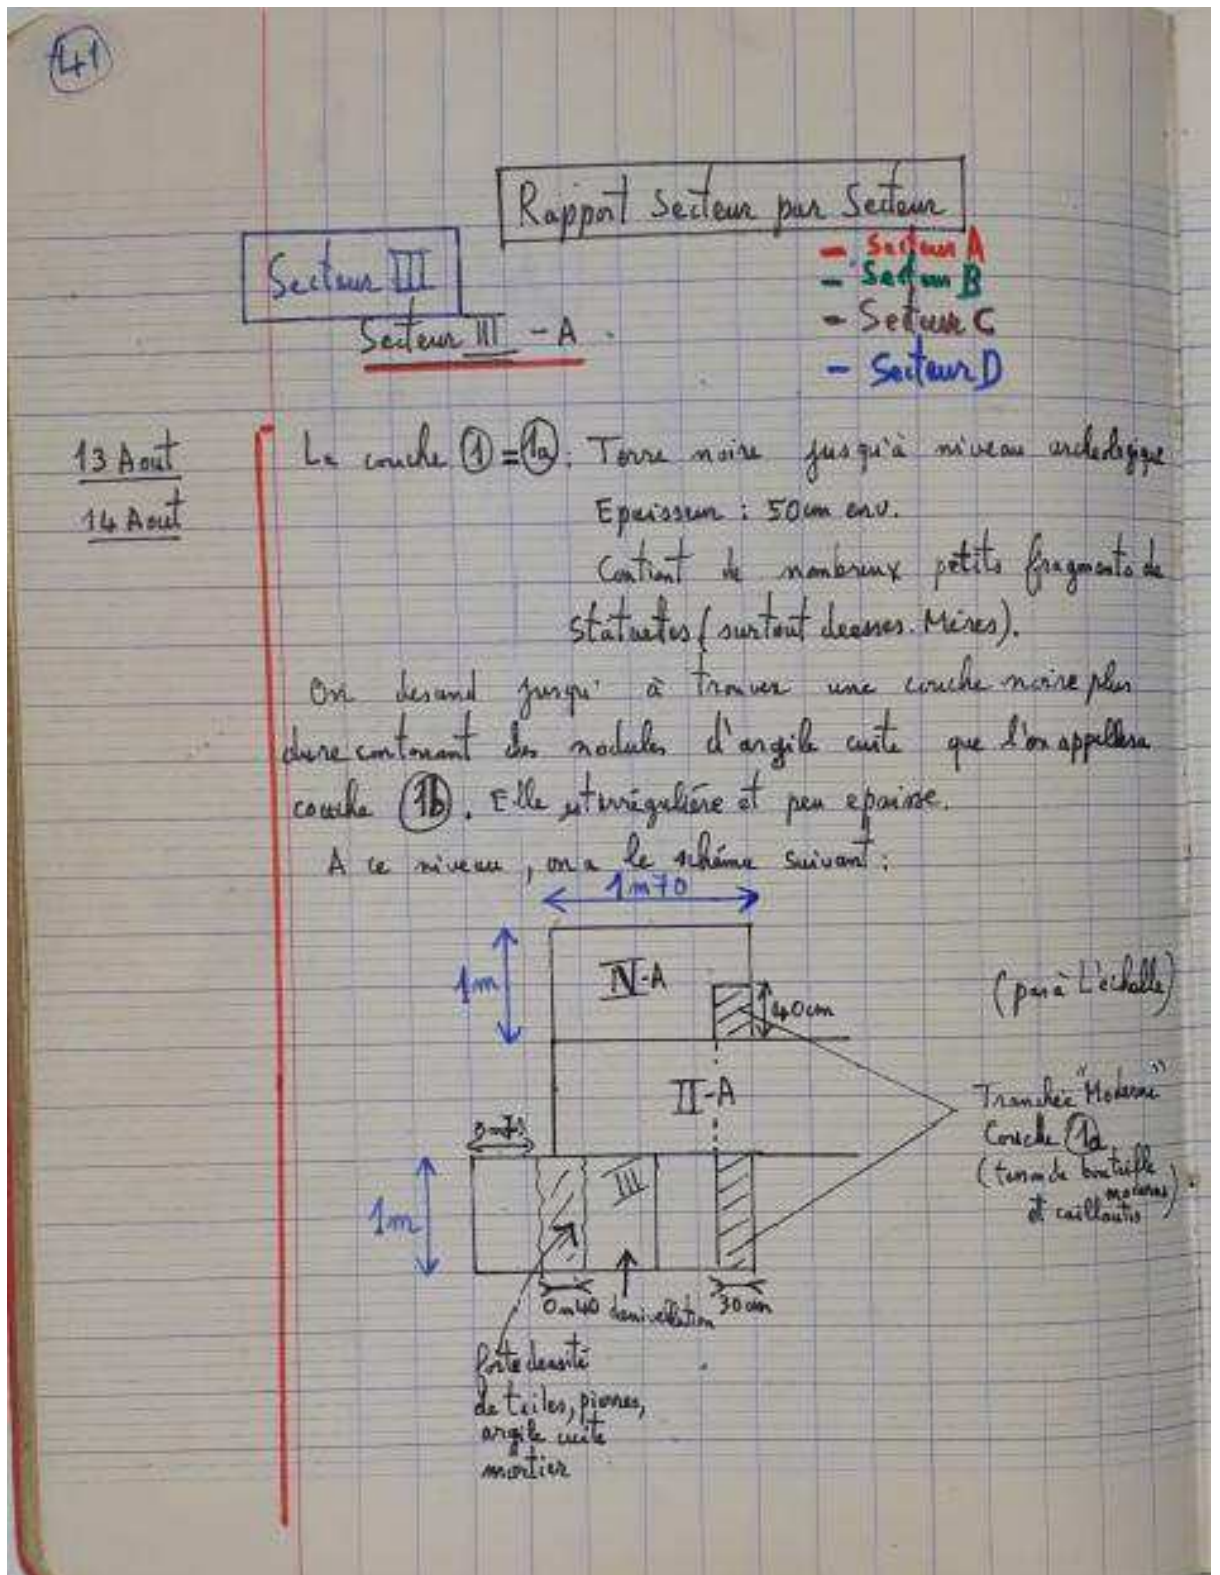 41
Rapport Secteur par Secteur
Secteur III
- Secteur A
- Secteur B
- Secteur C
- Secteur D
Secteur III - A
13 Aout
14 Aout
La couche 1 = 1a : Terre noire jusqu'à niveau archeologique
Epaisseur : 50cm env.
Contient de nombreux petits fragments de
statuettes (surtout deesses. Mères).
On descend jusqu'à trouver une couche noire plus
dure contenant des nodules d'argile cuite que l'on appellera
couche 1b. Elle est irrégulière et peu epaisse.
A ce niveau, on a le schéma suivant :
1m70
1m
IV-A
40cm
(pas à L'echelle)
II-A
Tranchée "Moderne"
Couche 1a
(tesson de bouteille
modernes)
et cailloutis
III
1m
0m40
denivellation
30cm
forte densité
de tuiles, pierres,
argile cuite
mortier